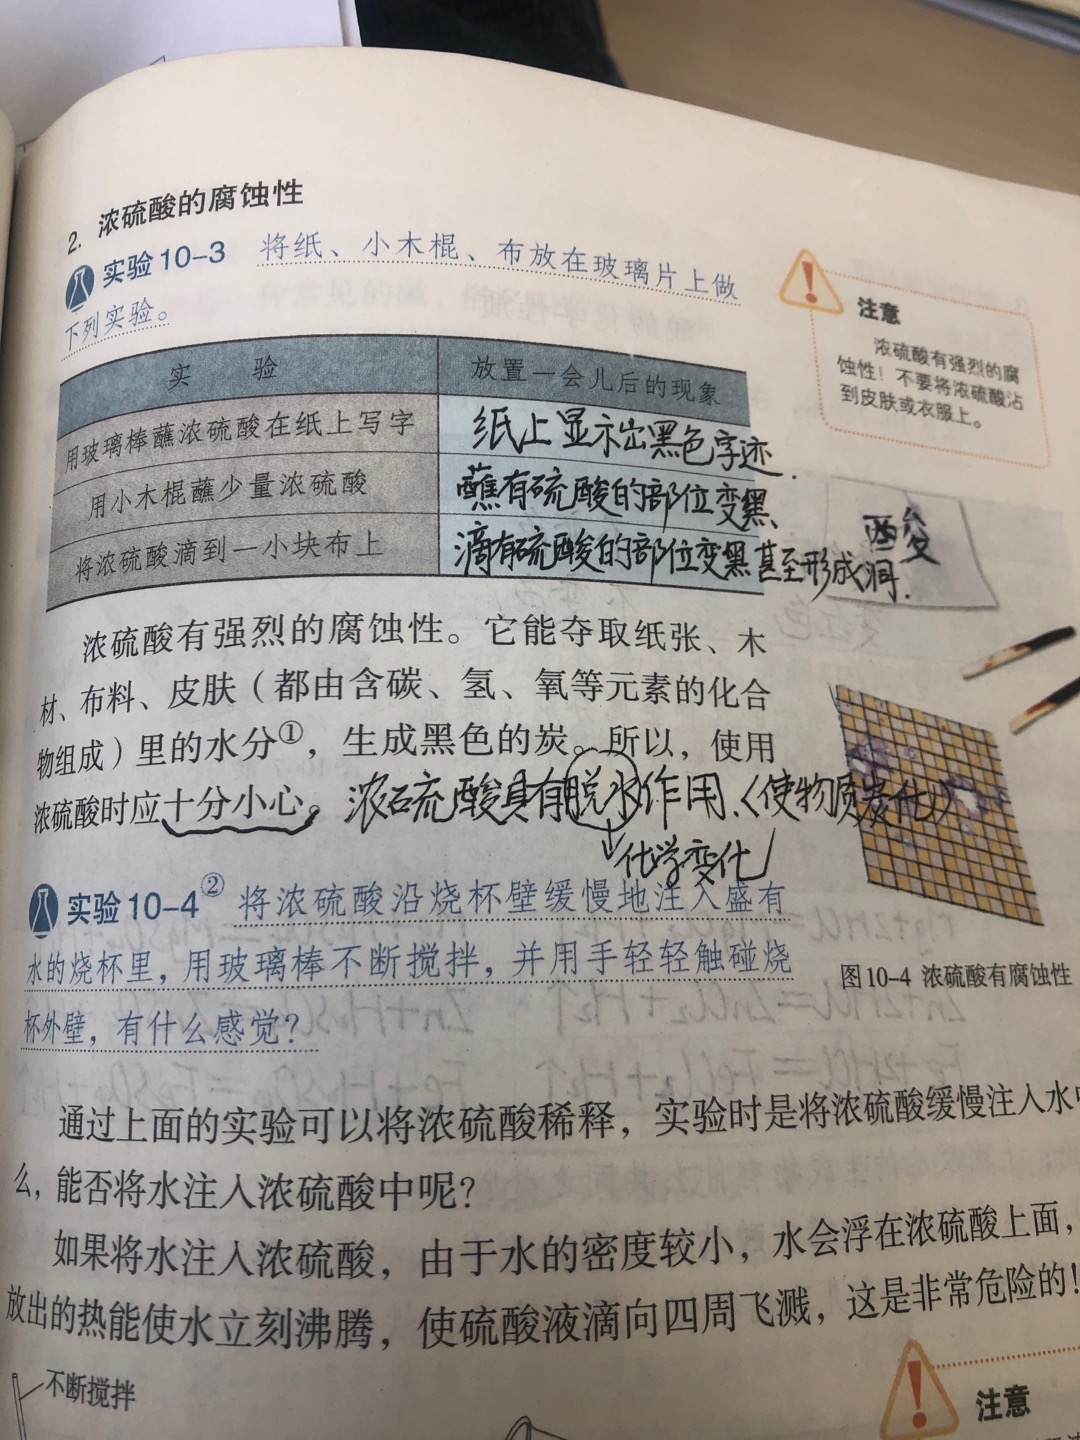 2. 浓硫酸的腐蚀性
实验10-3 将纸、小木棍、布放在玻璃片上做
下列实验。
实 验
放置一会儿后的现象
用玻璃棒蘸浓硫酸在纸上写字
纸上显示出黑色字迹.
用小木棍蘸少量浓硫酸
蘸有硫酸的部位变黑、
将浓硫酸滴到一小块布上
滴有硫酸的部位变黑甚至形成洞.
注意
浓硫酸有强烈的腐
蚀性！不要将浓硫酸沾
到皮肤或衣服上。
酸
浓硫酸有强烈的腐蚀性。它能夺取纸张、木
材、布料、皮肤（都由含碳、氢、氧等元素的化合
物组成）里的水分①，生成黑色的炭。所以，使用
浓硫酸时应十分小心。
浓硫酸具有脱水作用、(使物质炭化)
化学变化
实验10-4② 将浓硫酸沿烧杯壁缓慢地注入盛有
水的烧杯里，用玻璃棒不断搅拌，并用手轻轻触碰烧
杯外壁，有什么感觉？
图10-4 浓硫酸有腐蚀性
通过上面的实验可以将浓硫酸稀释，实验时是将浓硫酸缓慢注入水中
么，能否将水注入浓硫酸中呢？
如果将水注入浓硫酸，由于水的密度较小，水会浮在浓硫酸上面，
放出的热能使水立刻沸腾，使硫酸液滴向四周飞溅，这是非常危险的！
不断搅拌
注意